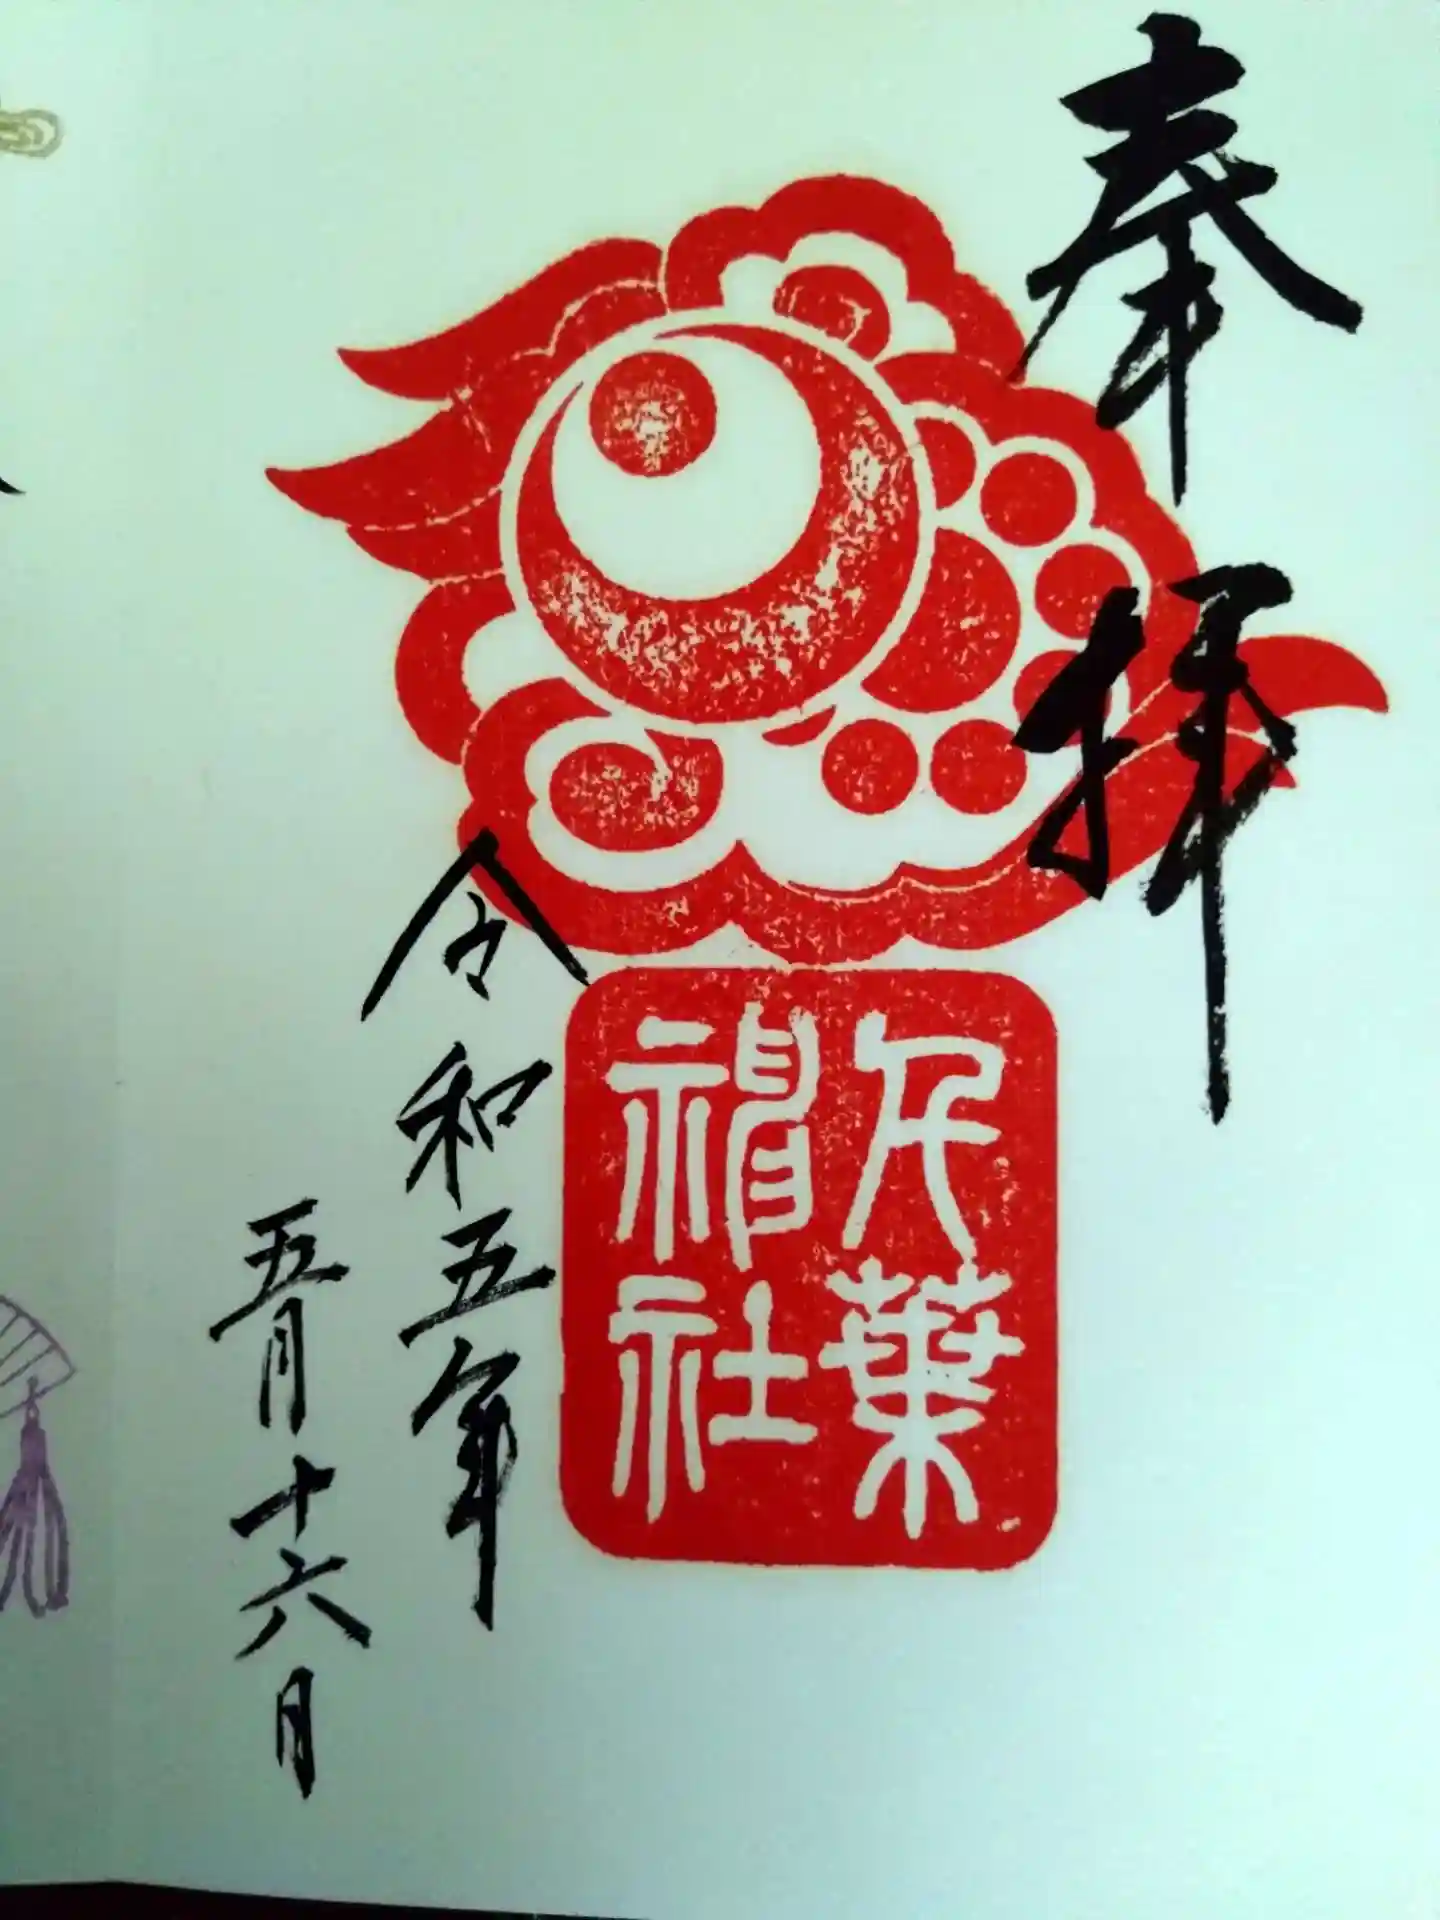 奉拝
千葉
神社
令和五年
五月十六日